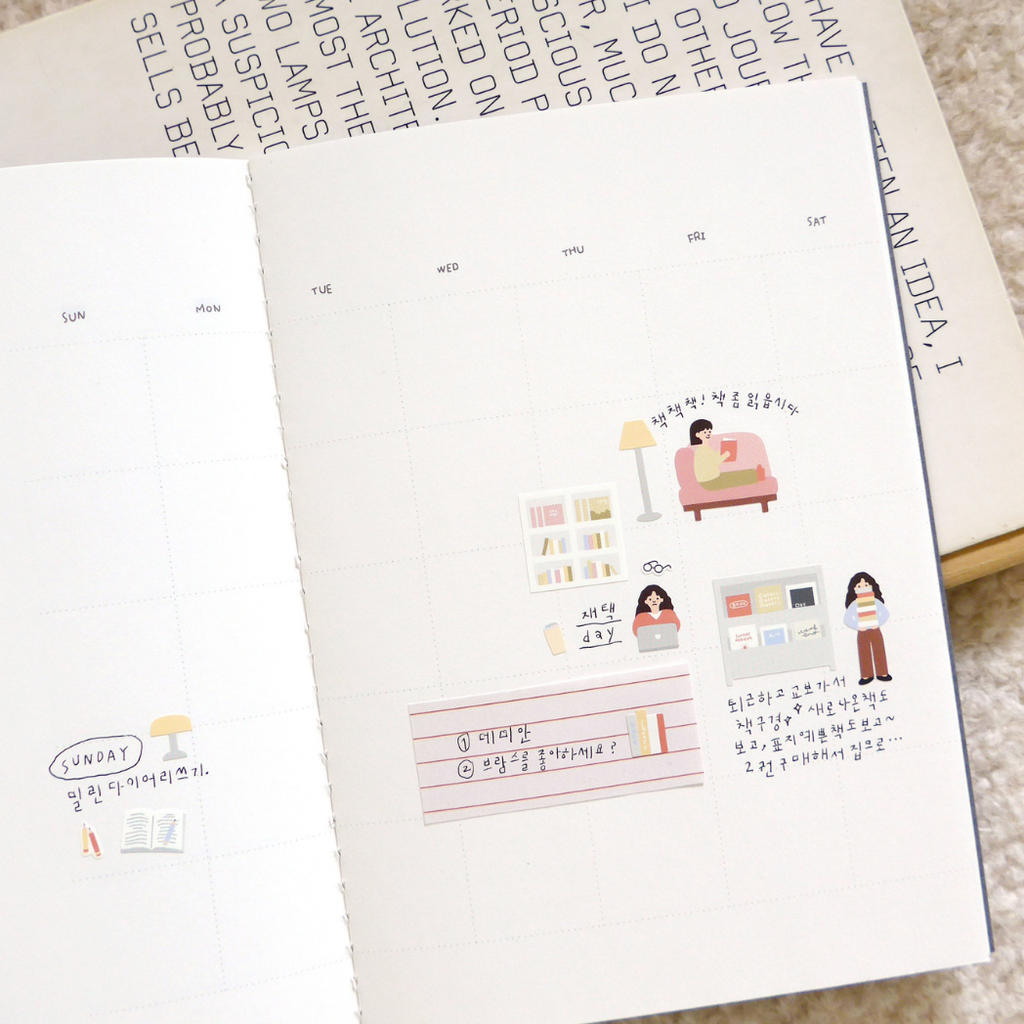 HAVE
LOW TH
D JOUR
OTHER
I DO N
R, MUC
SCIOUS
ERIOD P
RKED ON
LUTION.
ARCHITE
MOST THE
WO LAMPS
A SUSPICIO
PROBABLY
SELLS BE
TTEN AN IDEA, I
SUN
MON
TUE
WED
THU
FRI
SAT
책책책! 책 좀 읽읍시다
재택
day
퇴근하고 교보가서
책구경 새로나온책도
보고, 표지예쁜책도보고~
2권 구매해서 집으로...
① 데미안
② 브람스를 좋아하세요?
SUNDAY
밀린 다이어리쓰기.